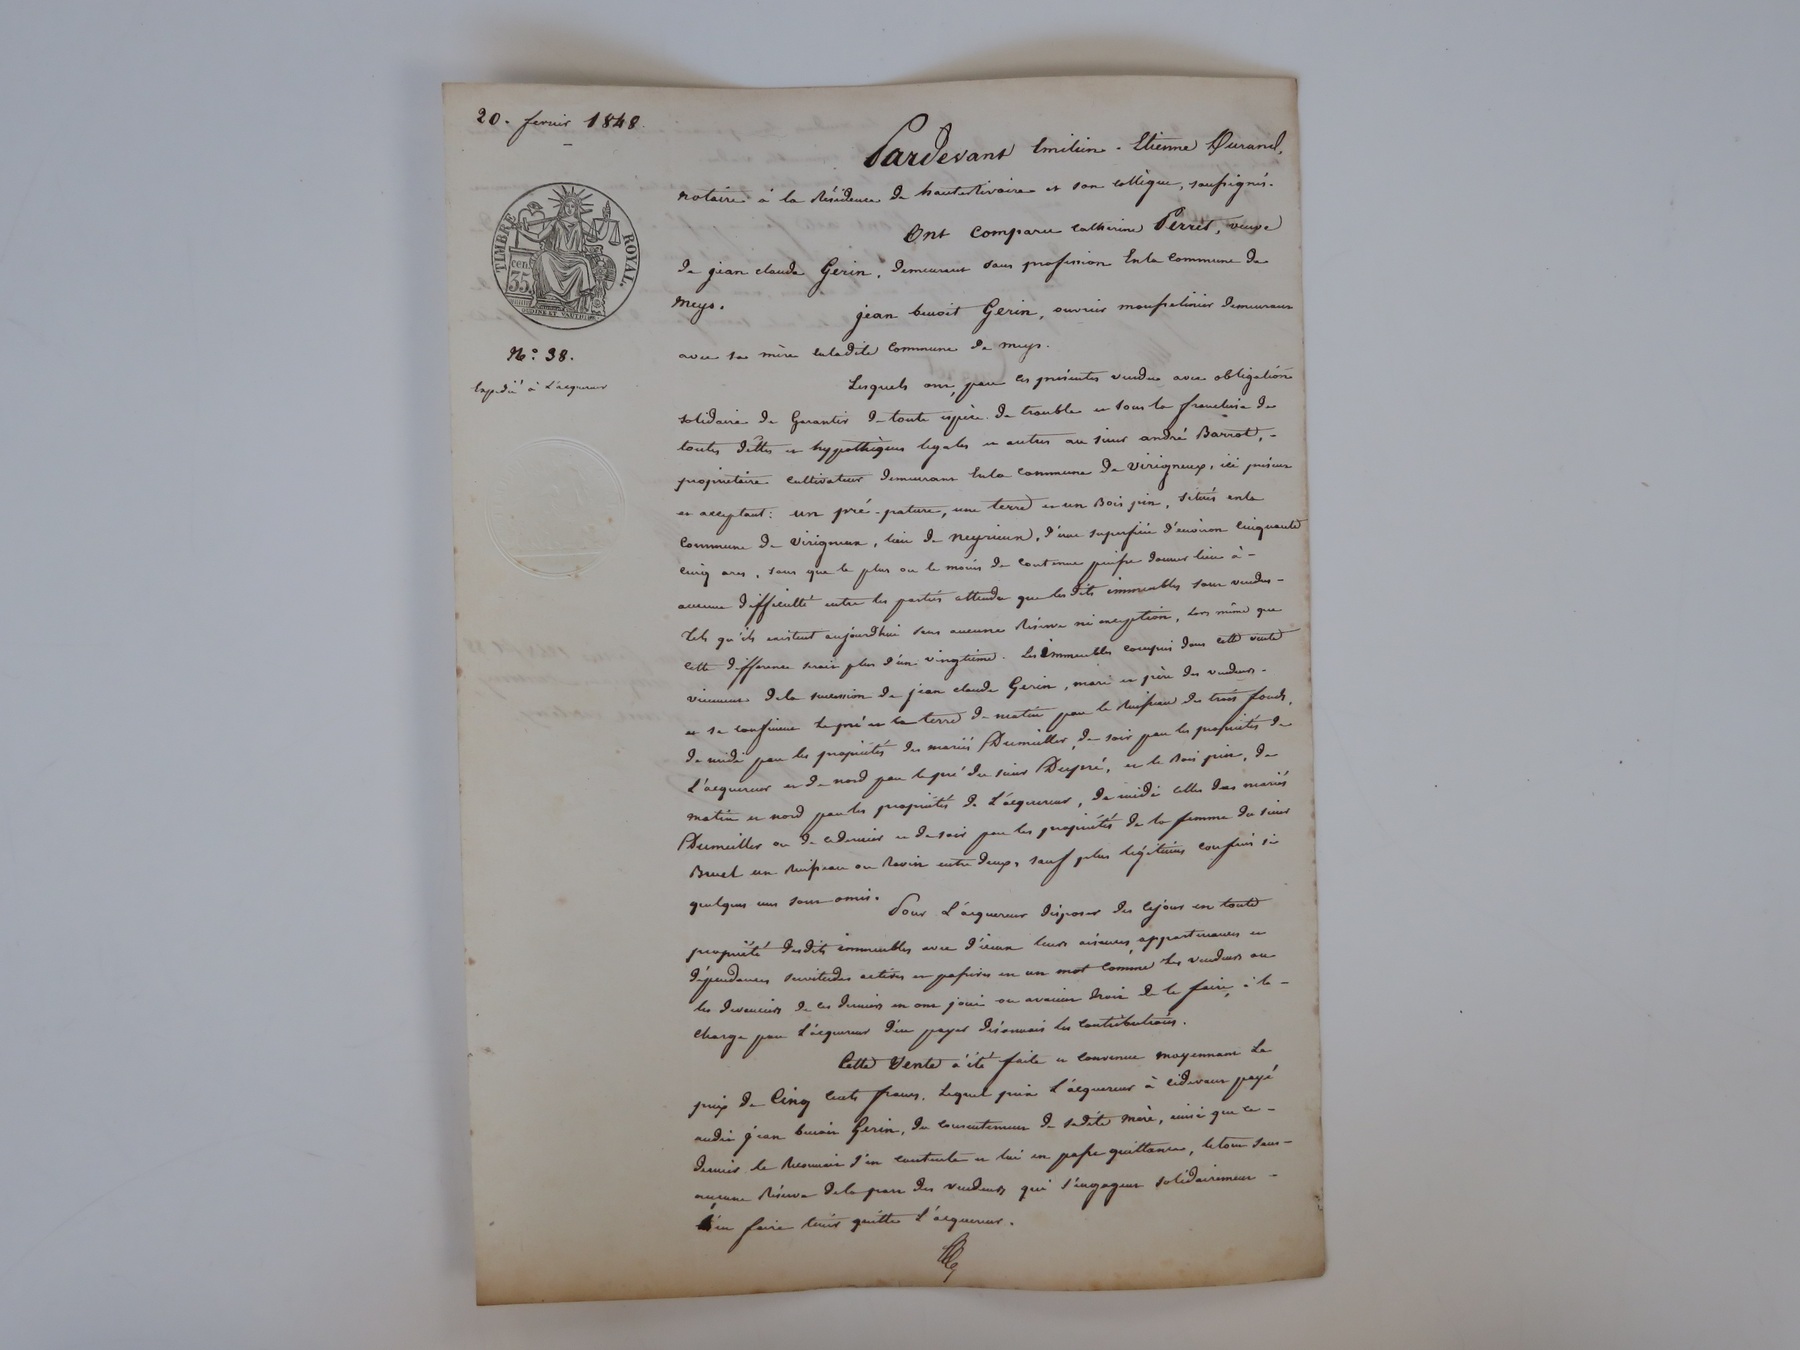 20. fevrier 1848.
Pardevant Emilien-Etienne Durand,
notaire à la Résidence de hauterivoire et son collègue, soussignés.
Ont Comparu Catherine Perret, veuve
de jean claude Gerin, demeurant sans profession En la Commune de
Meys.
jean benoit Gerin, ouvrier mousselinier demeurant
avec sa mère en la dite Commune de meys.
TIMBRE ROYAL.
cen. 35.
N.° 38.
Expédié à L'acquereur
Lesquels ont, par ces présentes vendu avec obligation
solidaire de Garantir de toute espèce de trouble et sous la franchise de
toutes dettes et hyppothèques legales et autres au sieur andré Barrot, -
proprietaire cultivateur demeurant En la Commune de Virigneux, ici présent
et acceptant: un pré-pature, une terre et un Bois pin, situés en la
Commune de Virigneux, lieu de Neyrieux, d'une superficie d'environ Cinquante
Cinq ares, sans que le plus ou le moins de contenue puisse donner lieu à -
aucune difficulté entre les parties attendu que lesdits immeubles sont vendus -
tels qu'ils existent aujourdhui sans aucune Réserve ni exception, lors même que
cette difference serait plus d'un vingtième. Les immeubles compris dans cette vente
viennent de la succession de jean claude Gerin, mari et père des vendeurs -
et se confinent le pré et la terre de matin par le Ruisseau de trois fonds,
de midi par les propriétés des mariés Dumillier, de soir par les propriétés de
L'acquereur et de nord par le pré du sieur Dupré, et le Bois pin, de
matin et nord par les propriétés de L'acquereur, de midi celles des mariés
Dumillier ou de ce dernier et de soir par les propriétés de la femme du sieur
Bruel un Ruisseau ou Ravin entre deux, sauf plus légitimes confins si
quelques uns sont omis.
Pour L'acquereur disposer dès ce jour en toute
propriété desdits immeubles avec d'iceux leurs aisances, appartenances et
dépendances servitudes actives et passives en un mot comme Les vendeurs ou
les devanciers de ces derniers en ont joui ou avaient droit de le faire, à la -
charge par L'acquereur d'en payer désormais les Contributions.
Cette Vente a été faite et convenue moyennant Le
prix de Cinq cents francs. Lequel prix L'acquereur à cidevant payé
audit jean benoit Gerin, du consentement de sadite mère, ainsi que ce -
dernier le Reconnait s'en contente et lui en passe quittance, le tout sans -
aucune Réserve de la part des vendeurs qui s'engagent solidairement -
d'en faire tenir quitte L'acquereur.